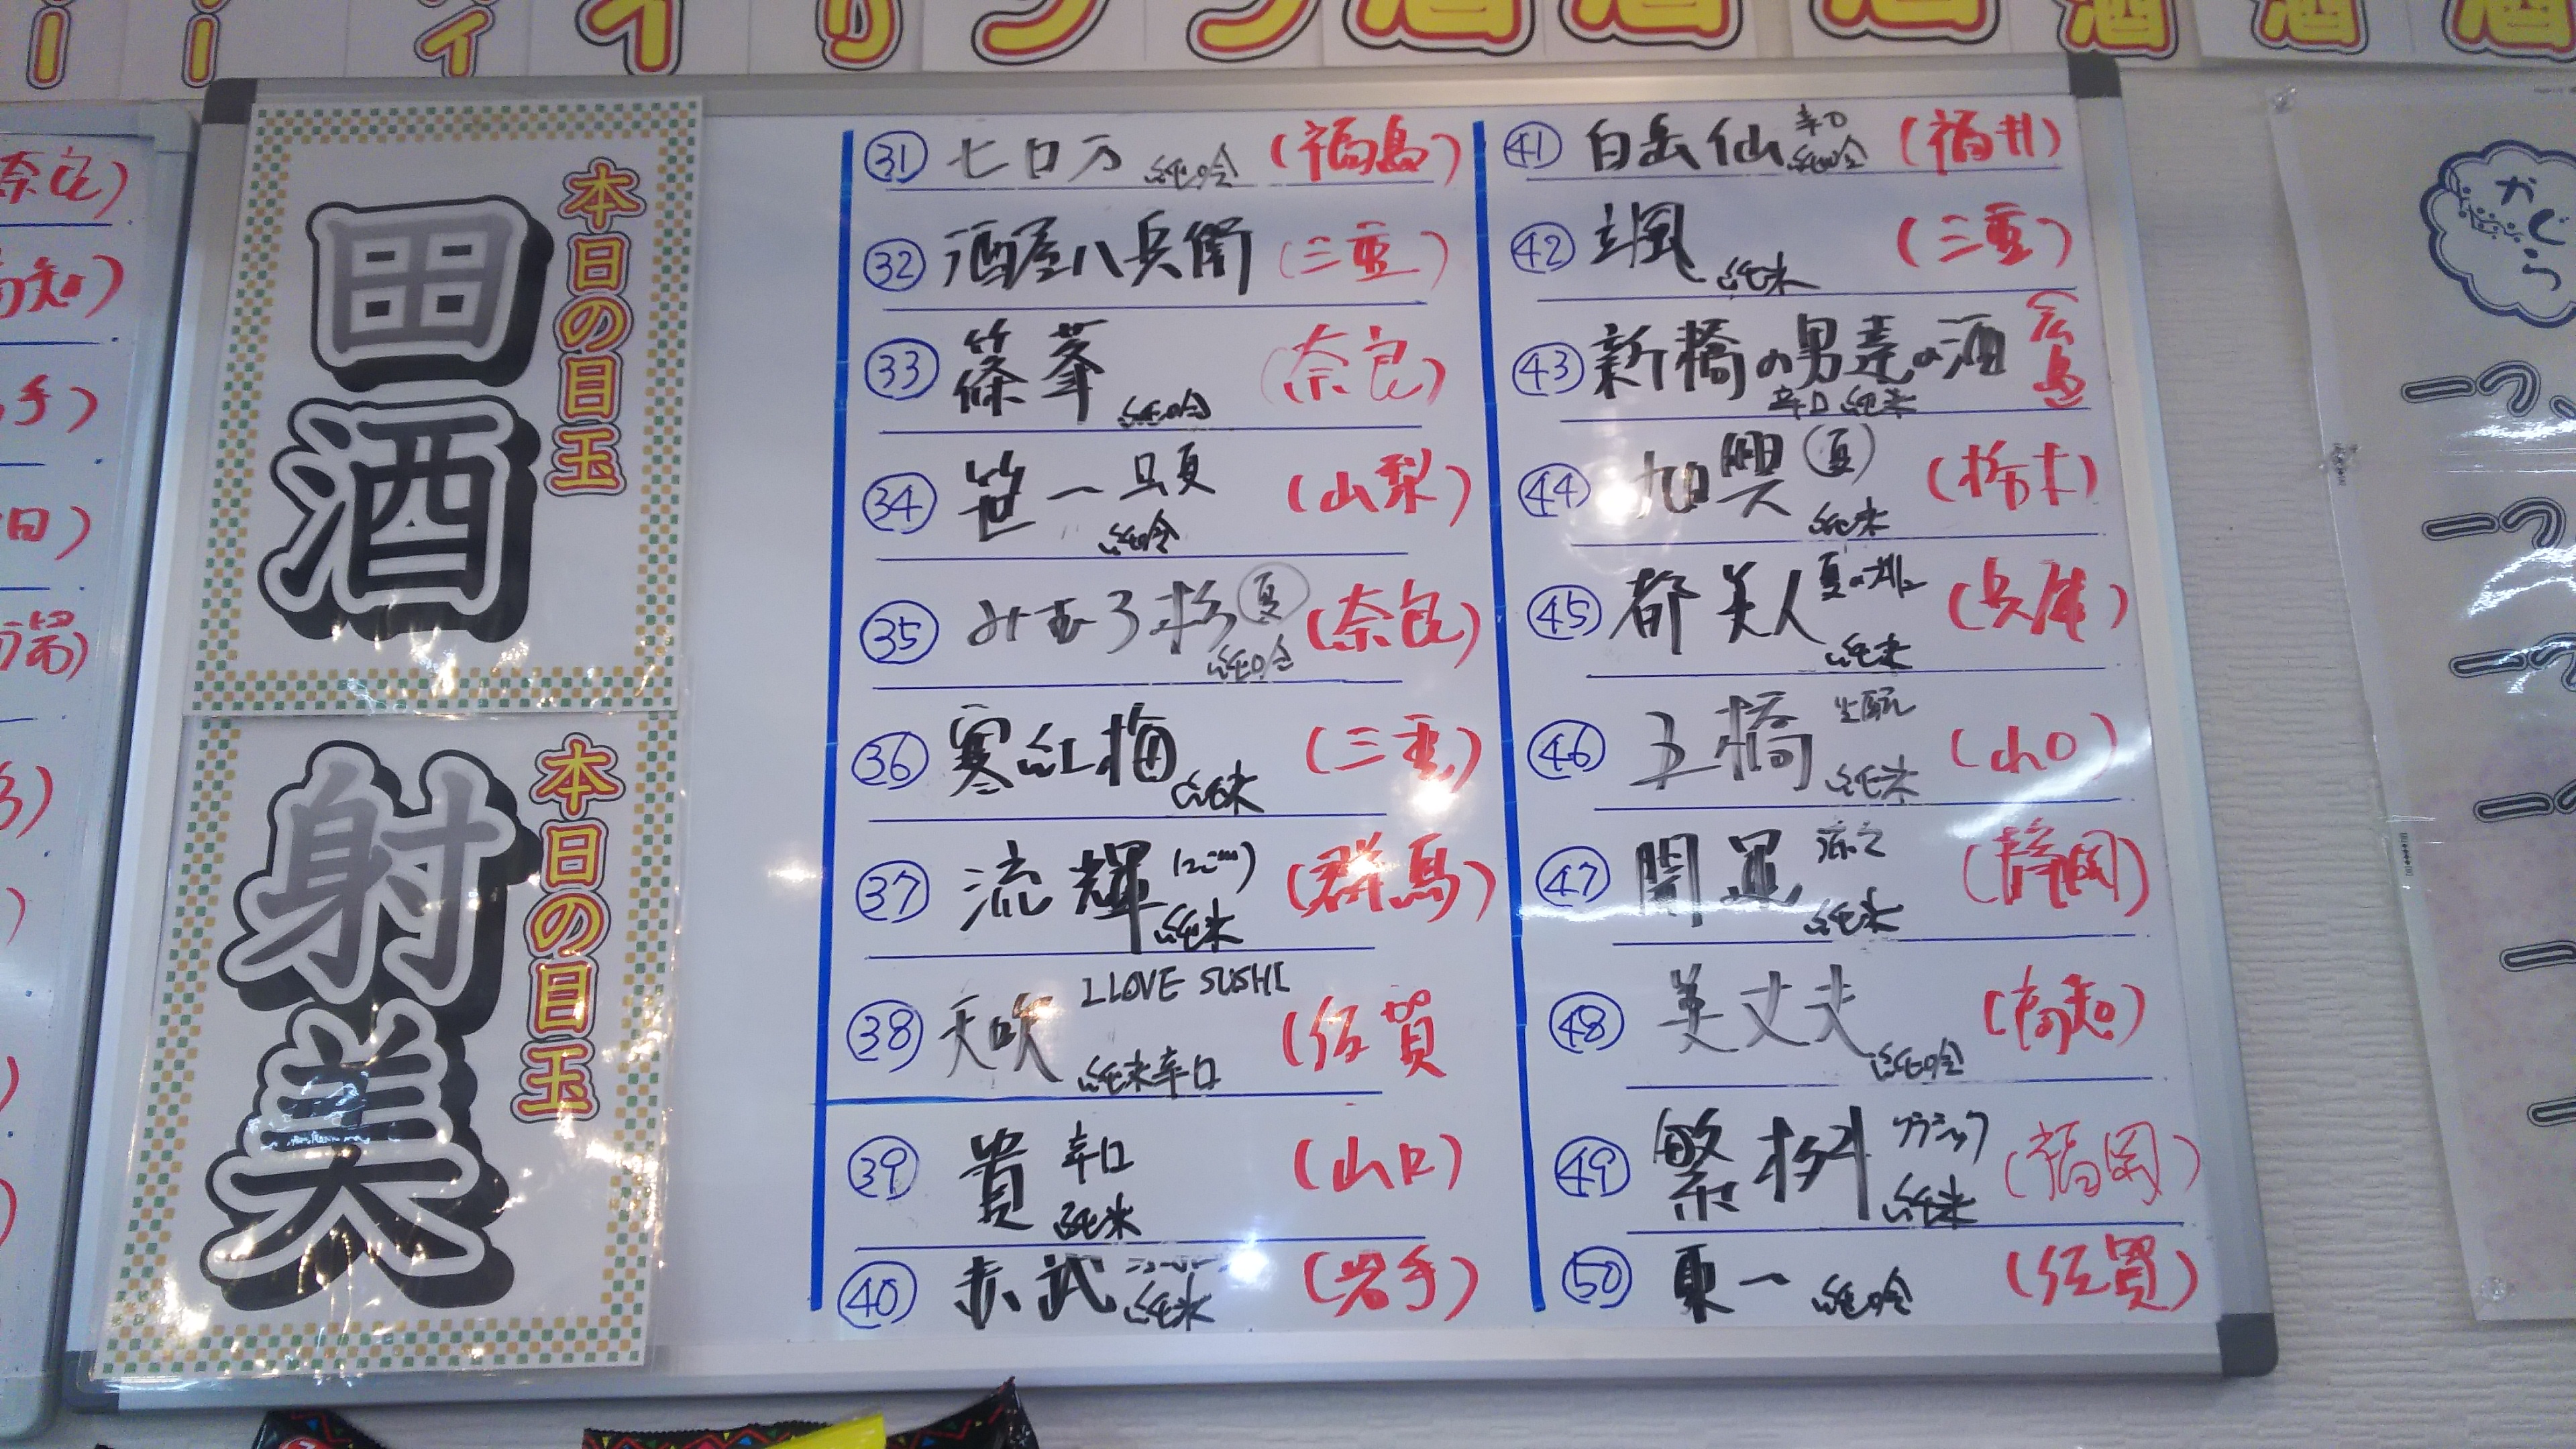 本日の目玉
田酒
本日の目玉
射美
㉛ 七ロ万 純吟 (福島)
㉜ 酒屋八兵衛 (三重)
㉝ 篠峯 純吟 (奈良)
㉞ 笹一 夏 純吟 (山梨)
㉟ みむろ杉 夏 純吟 (奈良)
㊱ 寒紅梅 純米 (三重)
㊲ 流輝 純米 (群馬)
㊳ 天吹 I LOVE SUSHI 純米辛口 (佐賀
㊴ 貴 辛口 純米 (山口)
㊵ 赤武 純米 (岩手)
㊶ 白岳仙 辛口 純吟 (福井)
㊷ 颯 純米 (三重)
㊸ 新橋の男達の酒 辛口 純米 (広島)
㊹ 加興 夏 純米 (栃木)
㊺ 都美人 純米 (兵庫)
㊻ 五橋 生酛 純米 (山口)
㊼ 開運 涼々 純米 (静岡)
㊽ 美丈夫 純吟 (高知)
㊾ 繁桝 クラシック 純米 (福岡)
㊿ 東一 純吟 (佐賀)
かぐら